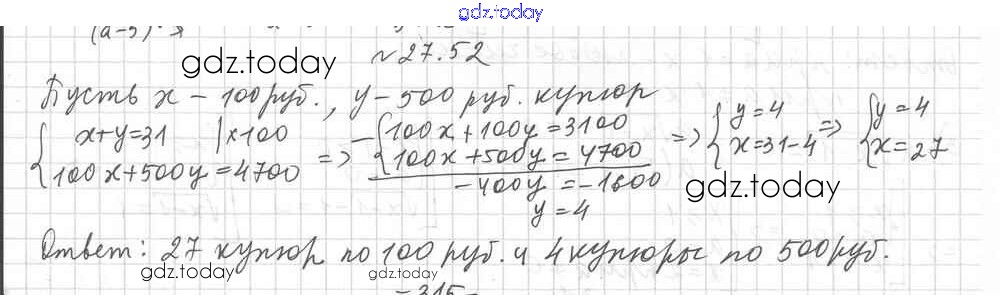 gdz.today
№27.52
gdz.today
Пусть x - 100 руб., y - 500 руб. купюр
{ x+y=31 |×100
100x+500y=4700 => - { 100x+100y=3100
100x+500y=4700
-400y=-1600
y=4 => { y=4
x=31-4 => { y=4
x=27
gdz.today
Ответ: 27 купюр по 100 руб. и 4 купюры по 500 руб.
gdz.today
gdz.today
-315-